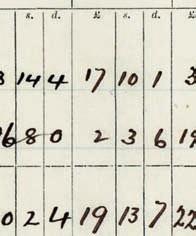 s. d. £ s. d. £
8 14 4 17 10 1 3
16 8 0 2 3 6 19
0 2 4 19 13 7 22